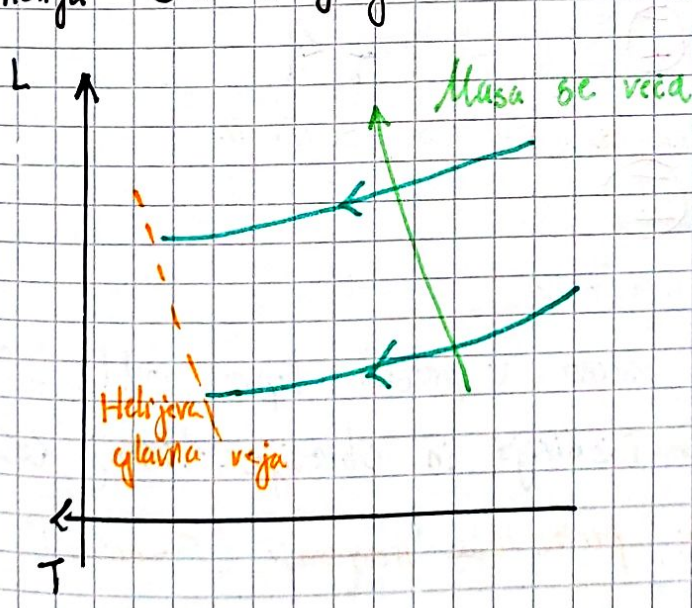 L
Masa se veča
Helijeva
glavna veja
T